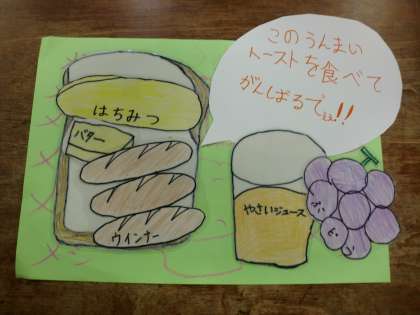 このうんまい
トーストを食べて
がんばるでぇ!!
はちみつ
バター
ウインナー
やさいジュース
ぶどう